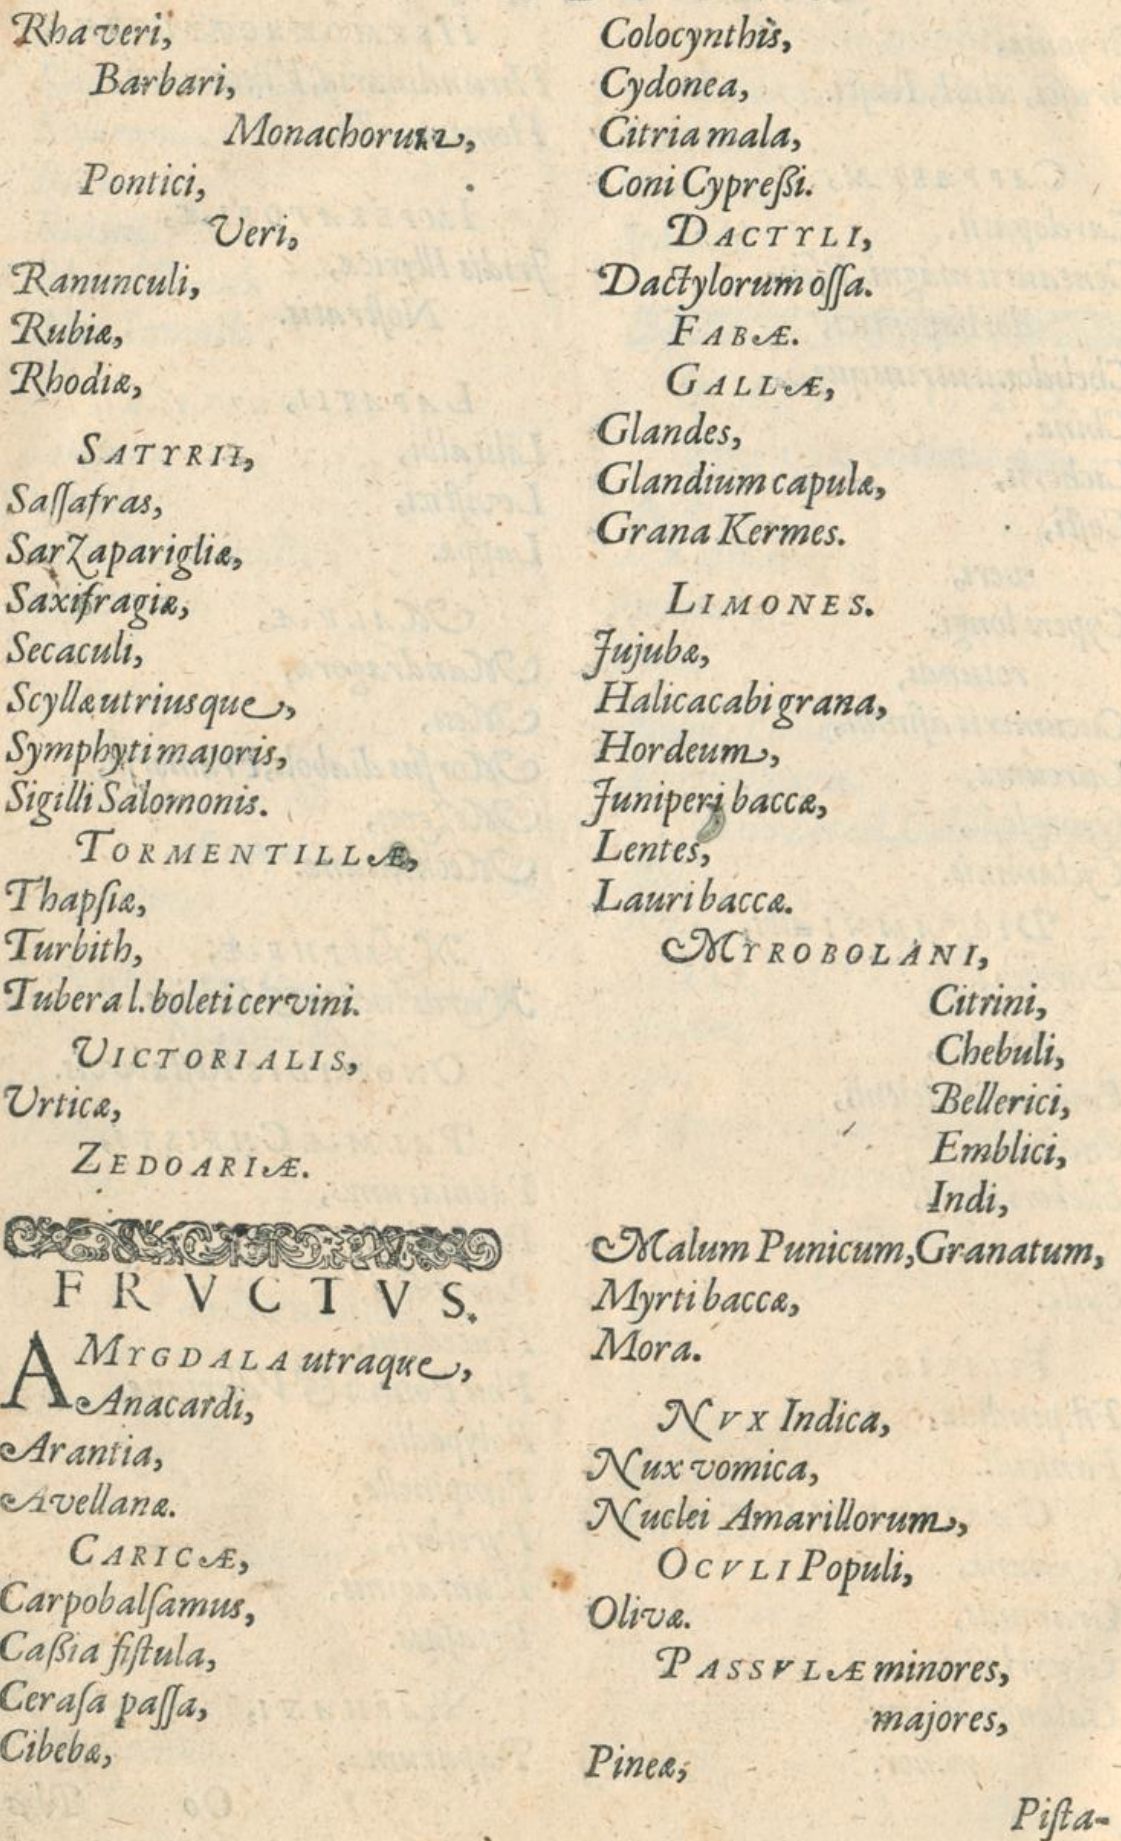 Rha veri,
Barbari,
Monachorum,
Pontici,
Veri,
Ranunculi,
Rubiæ,
Rhodiæ,
SATYRII,
Saſſafras,
Sarzaparigliæ,
Saxifragiæ,
Secaculi,
Scyllæ utriusque,
Symphyti majoris,
Sigilli Salomonis.
TORMENTILLÆ,
Thapſiæ,
Turbith,
Tubera l. boleti cervini.
VICTORIALIS,
Urticæ,
ZEDOARIÆ.
FRVCTVS.
AMYGDALA utraque,
Anacardi,
Arantia,
Avellanæ.
CARICÆ,
Carpobalſamus,
Caßia fiſtula,
Ceraſa paſſa,
Cibebæ,
Colocynthis,
Cydonea,
Citria mala,
Coni Cypreßi.
DACTYLI,
Dactylorum oſſa.
FABÆ.
GALLÆ,
Glandes,
Glandium capulæ,
Grana Kermes.
LIMONES.
Jujubæ,
Halicacabi grana,
Hordeum,
Juniperi baccæ,
Lentes,
Lauri baccæ.
MYROBOLANI,
Citrini,
Chebuli,
Bellerici,
Emblici,
Indi,
Malum Punicum, Granatum,
Myrti baccæ,
Mora.
NVX Indica,
Nux vomica,
Nuclei Amarillorum,
OCVLI Populi,
Olivæ.
PASSVLÆ minores,
majores,
Pineæ,
Piſta-